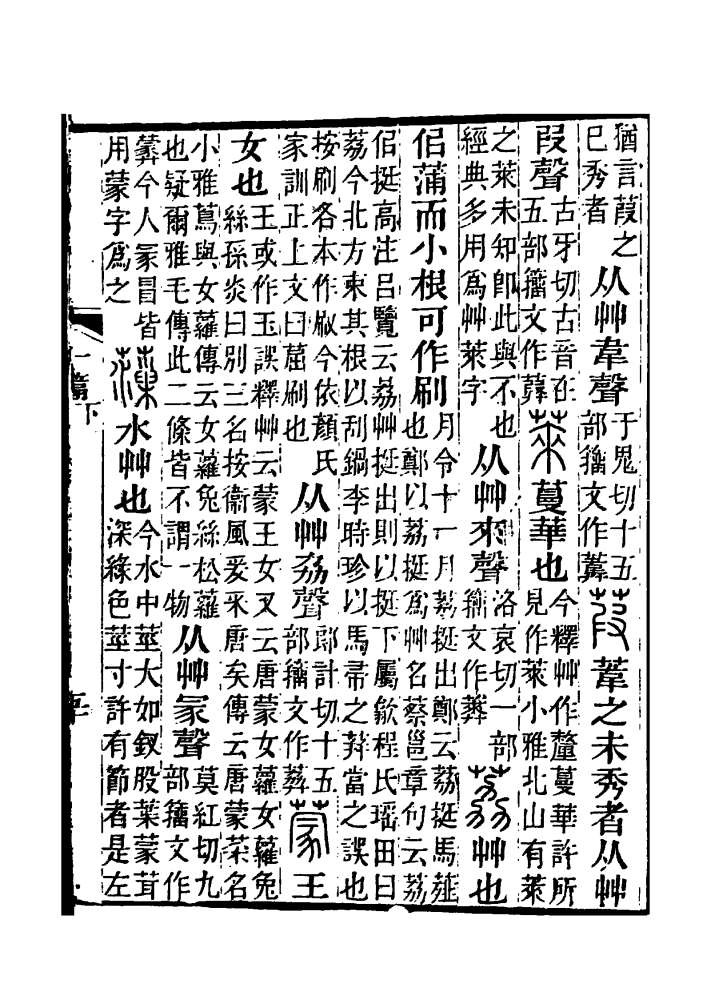 猶言葭之已秀者从艸韋聲于鬼切十五部籒文作葭葦之未秀者从艸
叚聲古牙切古音在五部籒文作萊蔓華也今釋艸作釐蔓華許所見作萊小雅北山有萊
之萊未知卽此與不也經典多用爲艸萊字从艸來聲洛哀切一部籒文作荔艸也
佀蒲而小根可作刷月令十一月荔挺出鄭云荔挺馬薤也鄭以荔挺爲艸名蔡邕章句云荔
佀挺高注吕覽云荔艸挺出則以挺下屬歙程氏瑶田曰荔今北方束其根以刮鍋李時珍以馬帚之荓當之誤也
按刷各本作㕞今依顏氏家訓正上文曰䓛刷也从艸劦聲郎計切十五部籒文作蒙王
女也王或作玉誤釋艸云蒙王女又云唐蒙女蘿女蘿兔絲孫炎曰別三名按衞風爰采唐矣傳云唐蒙菜名
小雅蔦與女蘿傳云女蘿兔絲松蘿也疑爾雅毛傳此二條皆不謂一物从艸冡聲莫紅切九部籒文作
今人冡冒皆用蒙字爲之薻水艸也今水中莖大如釵股葉蒙茸深綠色莖寸許有節者是左
一篇下